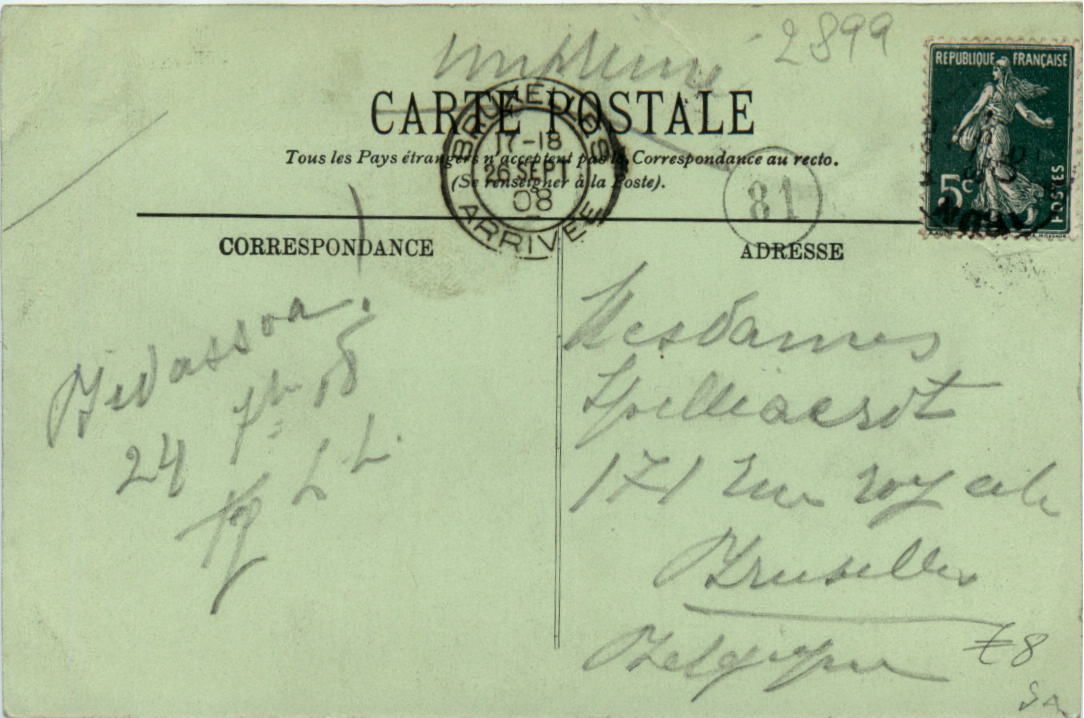 imprimé 2899
REPUBLIQUE FRANÇAISE
5c POSTES
CARTE POSTALE
Tous les Pays étrangers n'acceptent pas la Correspondance au recto.
(Se renseigner à la Poste).
BRUXELLES
17-18
26 SEPT
08
ARRIVÉE
81
CORRESPONDANCE
Bidassoa.
24 7bre 08
L L
ADRESSE
Mesdames
Spelliaerdt
171 rue royale
Bruxelles
Belgique
£8